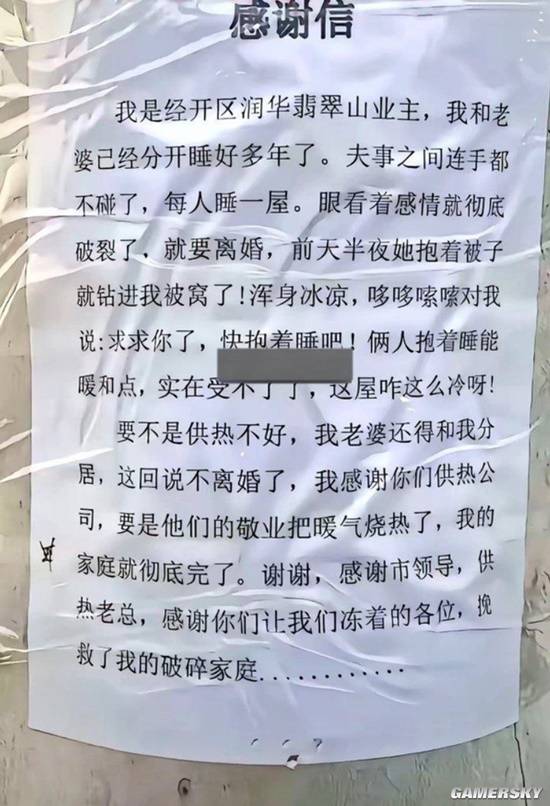 感谢信
我是经开区润华翡翠山业主，我和老
婆己经分开睡好多年了。夫事之间连手都
不碰了，每人睡一屋。眼看着感情就彻底
破裂了，就要离婚，前天半夜她抱着被子
就钻进我被窝了!浑身冰凉，哆哆嗦嗦对我
说:求求你了，快抱着睡吧！俩人抱着睡能
暖和点，实在受不了了，这屋咋这么冷呀!
要不是供热不好，我老婆还得和我分
居，这回说不离婚了，我感谢你们供热公
司，要是他们的敬业把暖气烧热了，我的
家庭就彻底完了。谢谢，感谢市领导，供
热老总，感谢你们让我们冻着的各位，挽
救了我的破碎家庭............
GAMERSKY